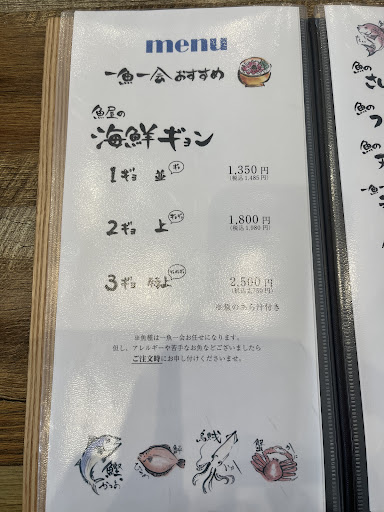 menu
一魚一会 おすすめ
魚屋の
海鮮ギョン
1ギョ 並
1,350円
(税込1,485円)
2ギョ 上
1,800円
(税込1,980円)
3ギョ 特上
2,500円
(税込2,750円)
※魚のあら汁付き
※魚種は一魚一会お任せになります。
但し、アレルギーや苦手なお魚などございましたら
ご注文時にお申し付けくださいませ。
鰹
かつお
烏賊
魚の
魚の
魚の
一魚